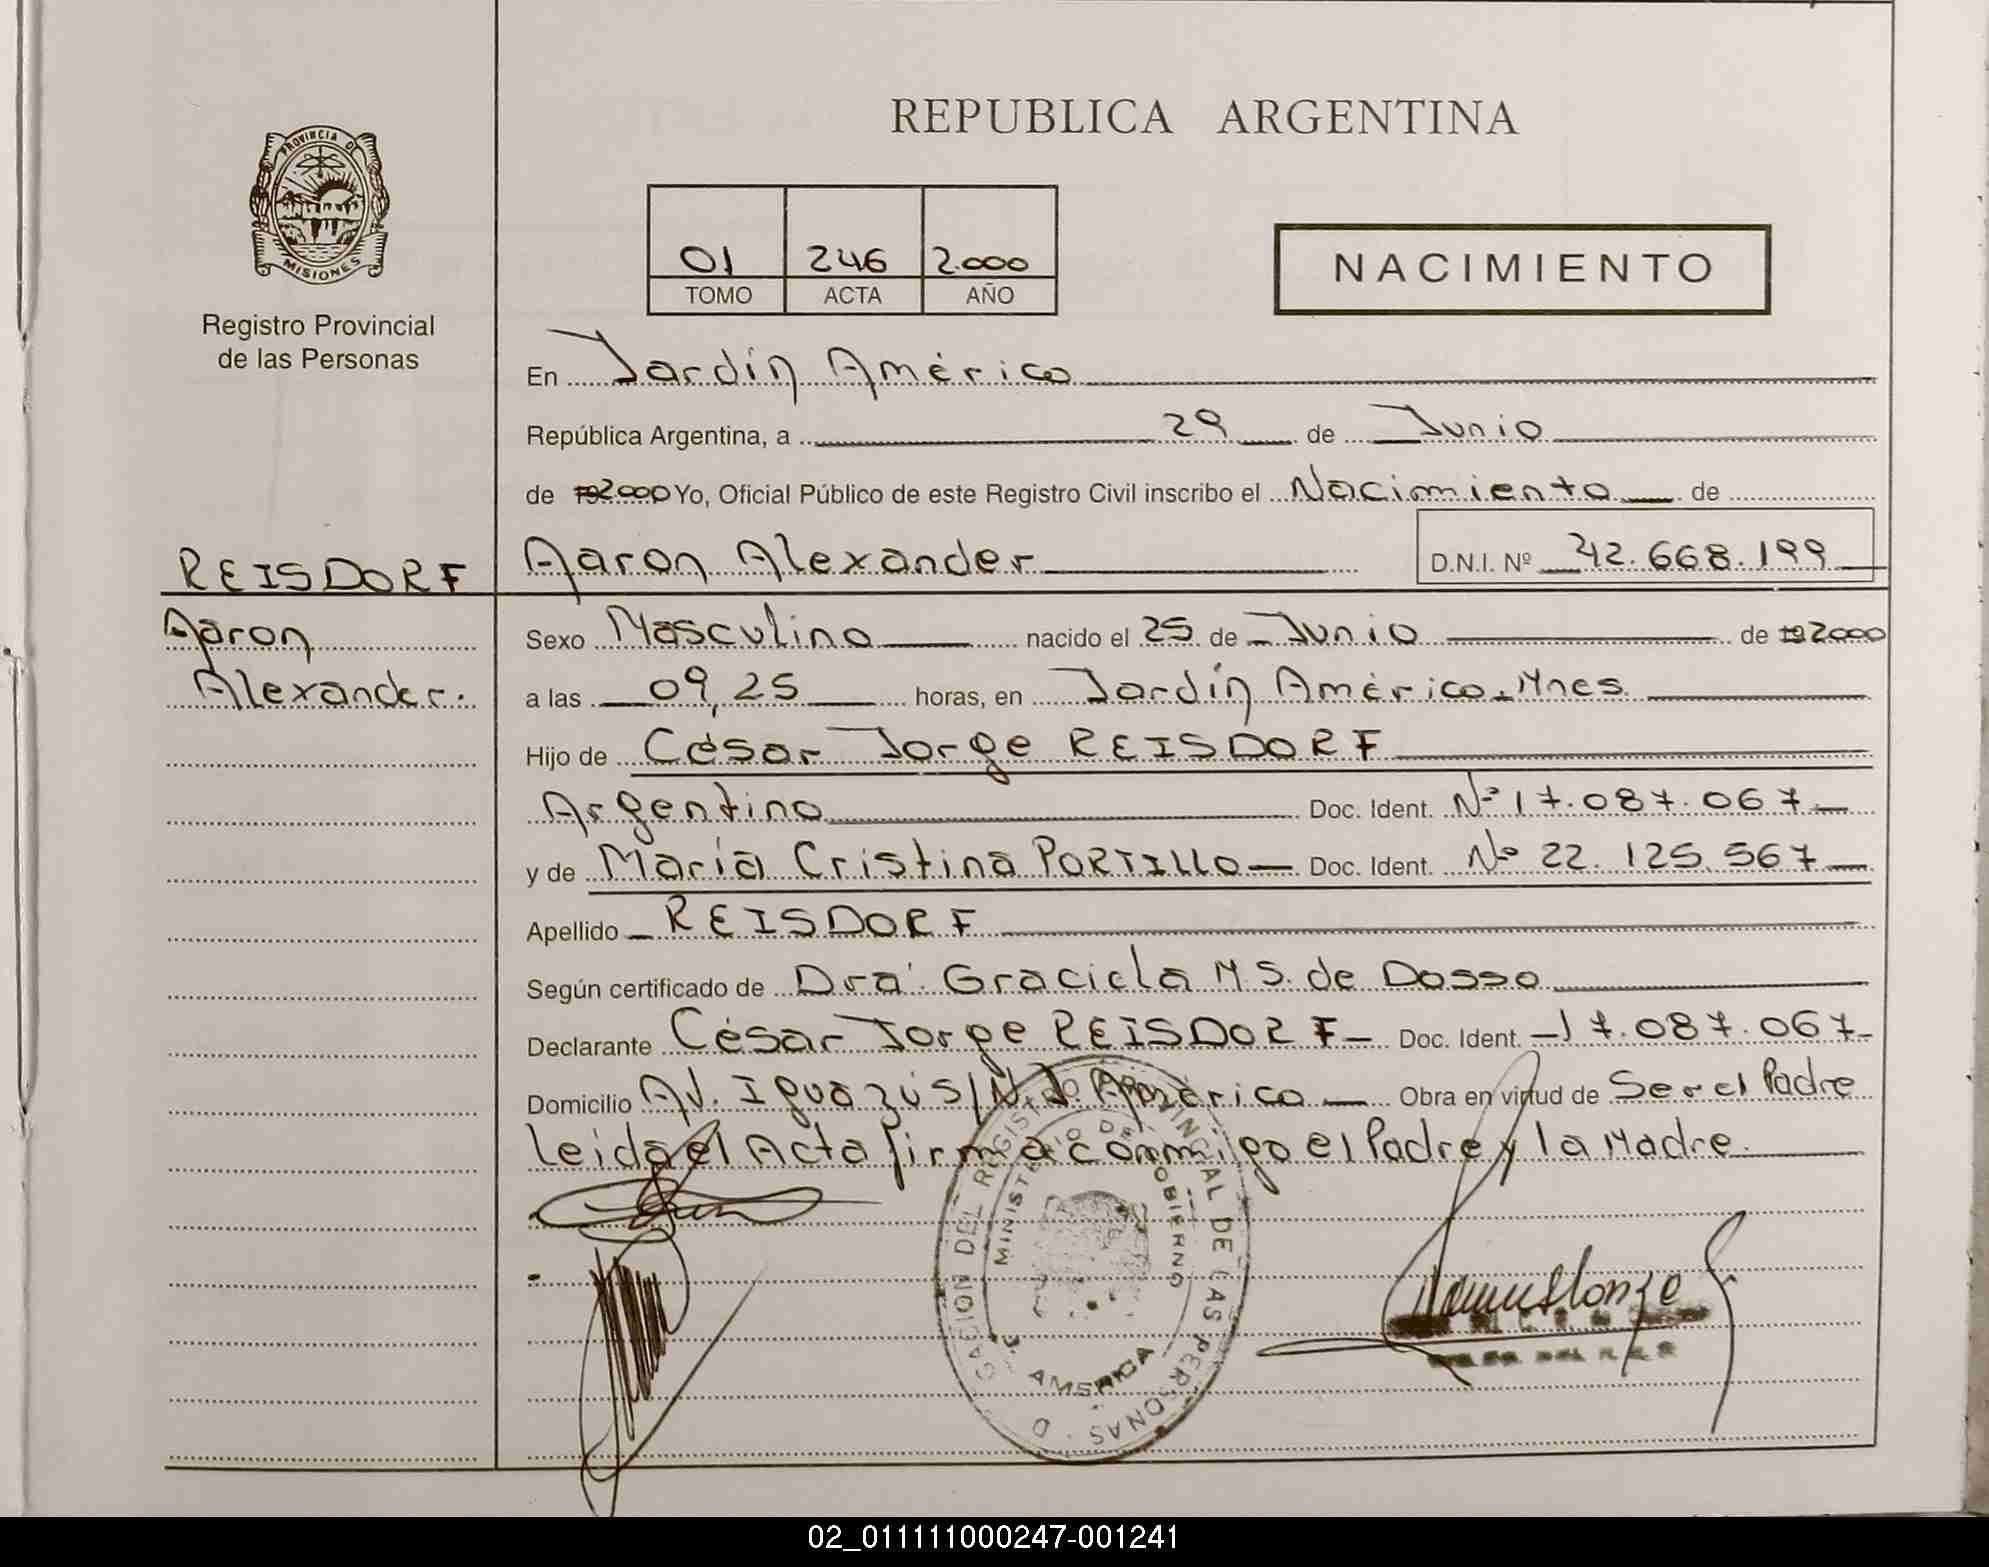 REPUBLICA ARGENTINA
PROVINCIA DE
MISIONES
Registro Provincial
de las Personas
01 246 2.000
TOMO ACTA AÑO
NACIMIENTO
En Jardín América
República Argentina, a 29 de Junio
de 192000 Yo, Oficial Público de este Registro Civil inscribo el Nacimiento de
REISDORF
Aaron Alexander D.N.I. Nº 42.668.199
Aaron
Alexander.
Sexo Masculino nacido el 25 de Junio de 192000
a las 09,25 horas, en Jardín América. Mnes
Hijo de César Jorge REISDORF
Argentino Doc. Ident. Nº 17.087.067
y de María Cristina PORTILLO Doc. Ident. Nº 22.125.567
Apellido REISDORF
Según certificado de Dra. Graciela M S. de Dosso
Declarante César Jorge REISDORF Doc. Ident. 17.087.067
Domicilio Av. Iguazú S/N. J. América Obra en virtud de Ser el Padre
Leida el Acta firma conmigo el Padre y la Madre.
DEL REGISTRO PROVINCIAL DE LAS PERSONAS
MINISTERIO DE GOBIERNO
J. AMERICA
02_011111000247-001241